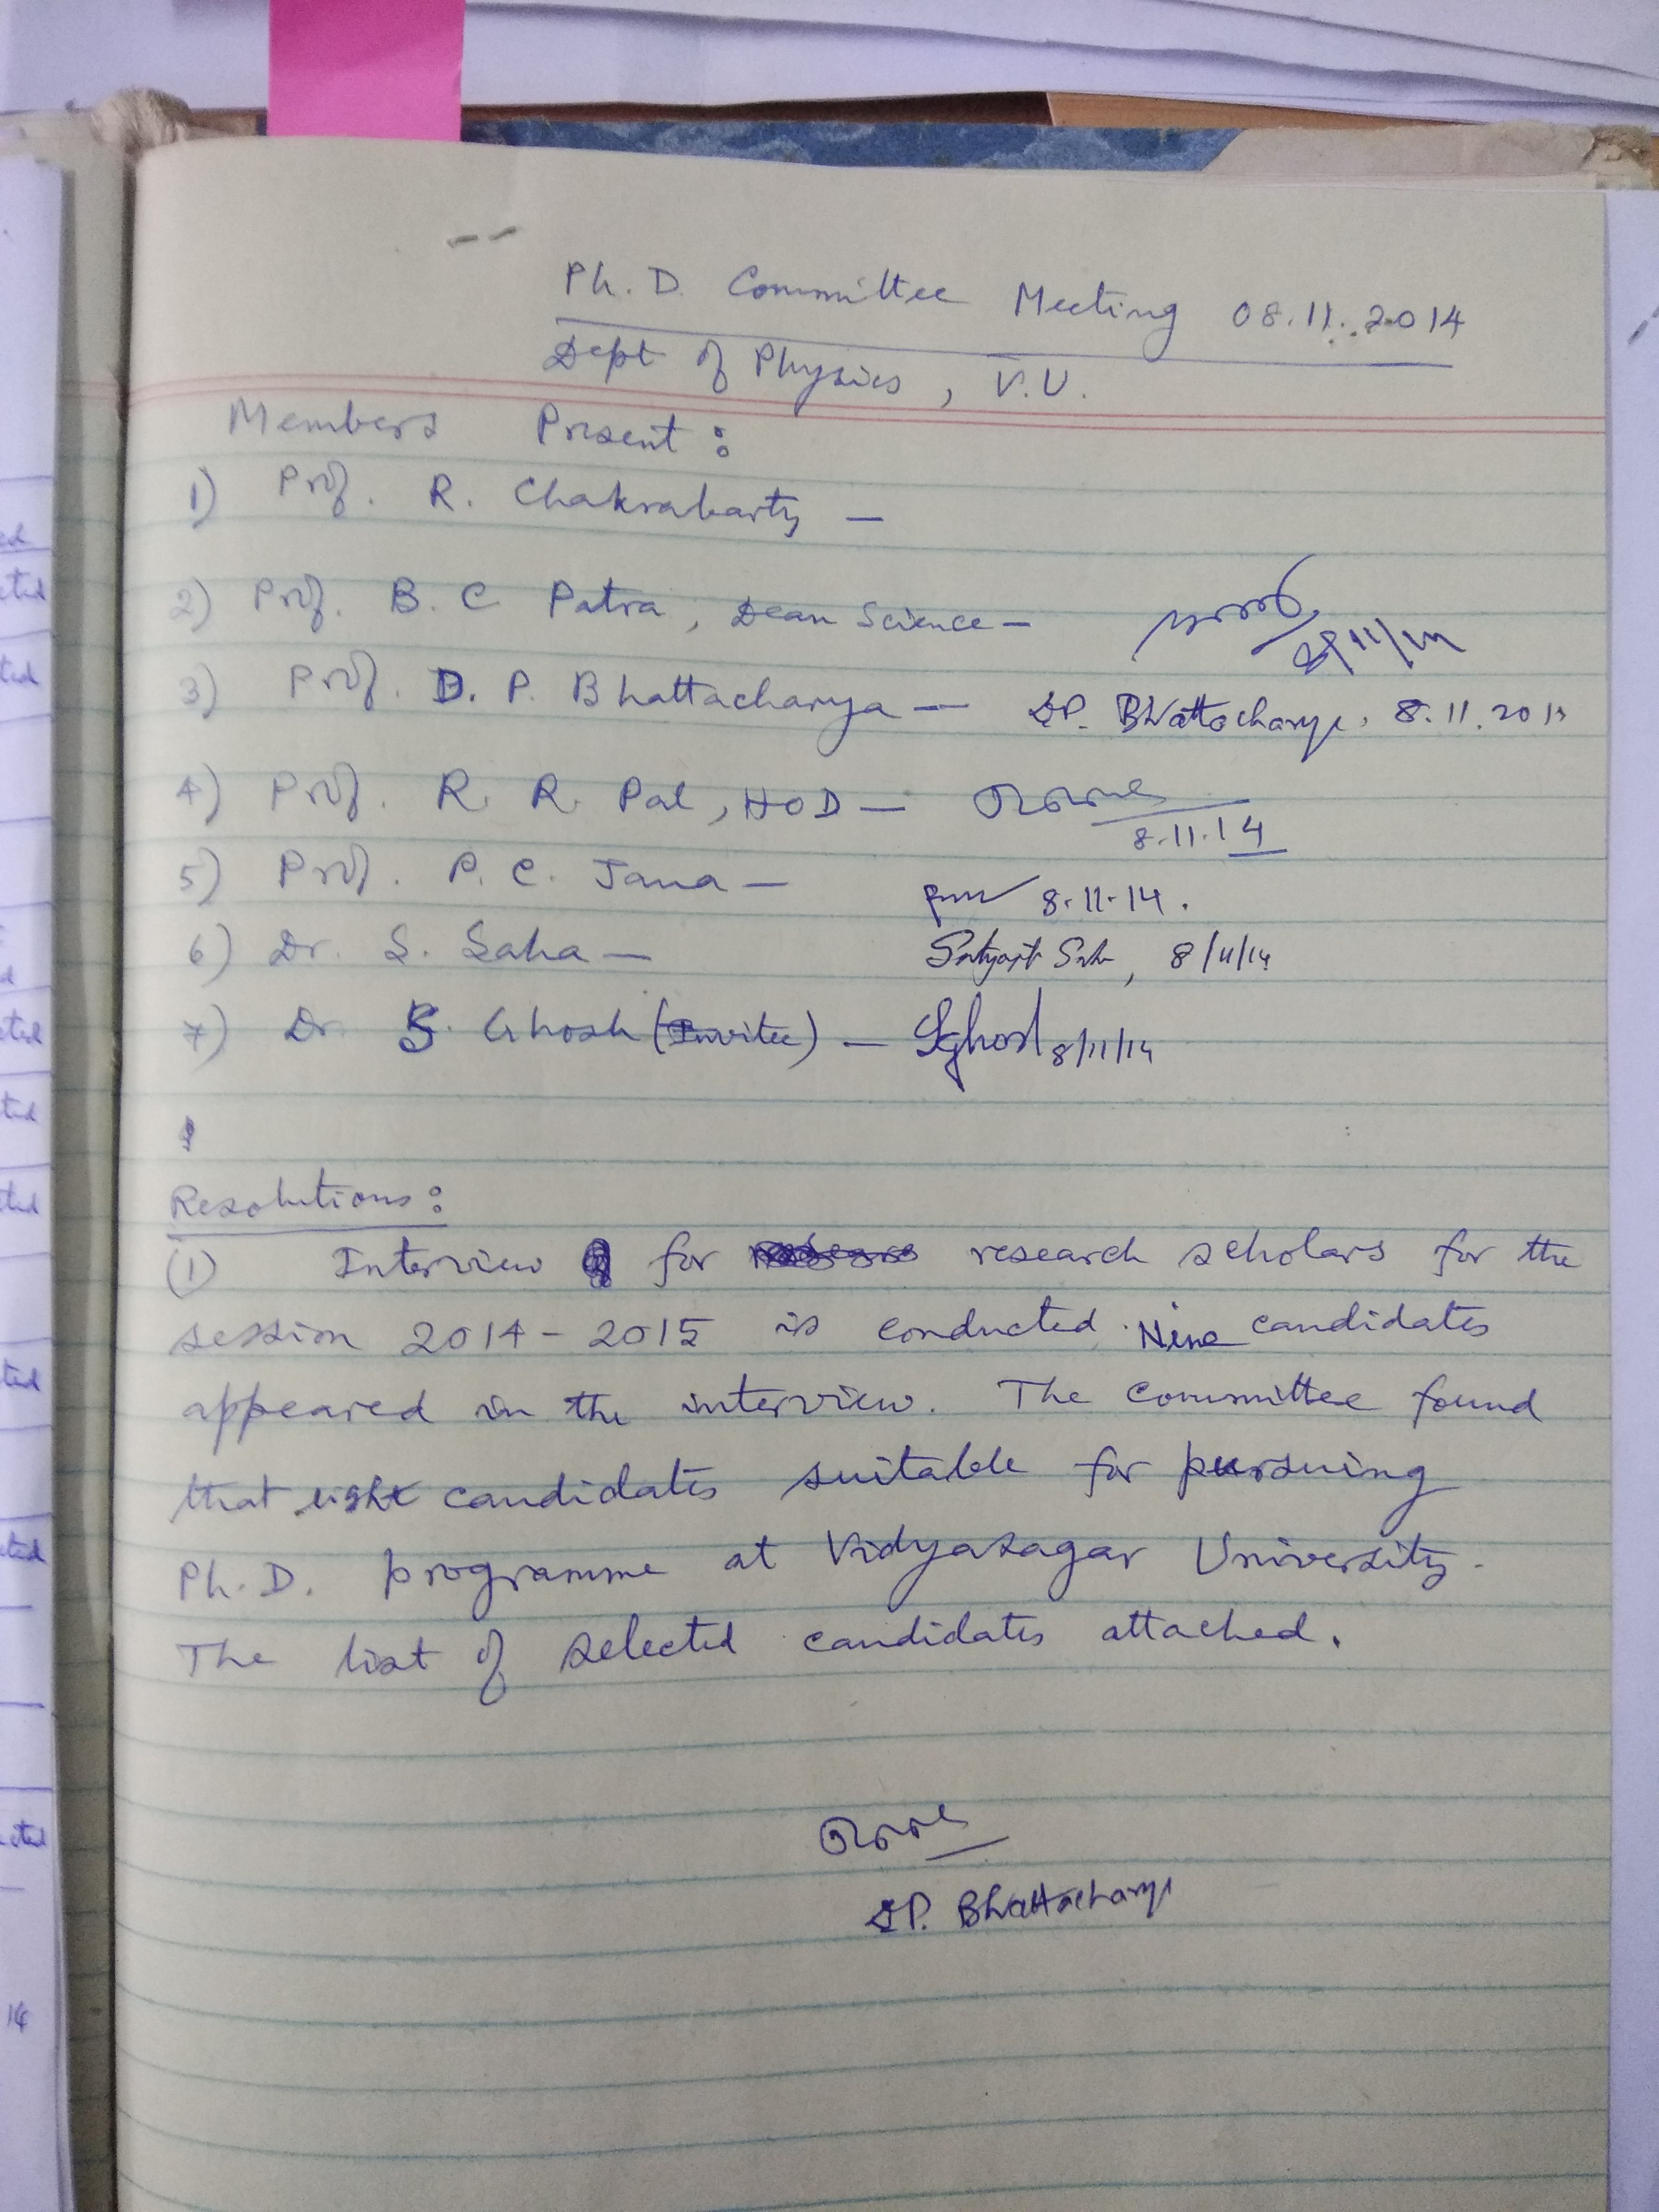 Ph.D. Committee Meeting 08.11.2014
Dept of Physics, V.U.
Members Present :
1) Prof. R. Chakrabarty —
2) Prof. B. C Patra, Dean Science —
3) Prof. D. P. Bhattacharya — DP. Bhattacharya, 8.11.201
4) Prof. R. R. Pal, HOD —
8.11.14
5) Prof. P. C. Jana — 8.11.14.
6) Dr. S. Saha — Satyajit Saha, 8/11/14
7) Dr. S. Ghosh (Invitee) — SGhosh 8/11/14
Resolutions :
(1) Interview for research scholars for the
session 2014-2015 is conducted. Nine candidates
appeared in the interview. The committee found
that eight candidates suitable for pursuing
Ph.D. programme at Vidyasagar University.
The list of selected candidates attached.
DP. Bhattacharya